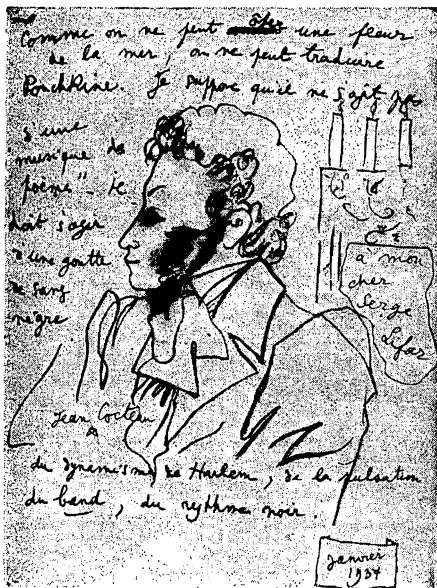 Comme on ne peut ôter une fleur
de la mer, on ne peut traduire
Pouchkine. Je suppose qu'il ne s'agit pas
d'une
musique de
poème" - il
doit s'agir
d'une goutte
de sang
nègre
à mon
cher
Serge
Lifar
Jean Cocteau
du dynamisme de Harlem, de la pulsation
du band, du rythme noir.
janvier
1937